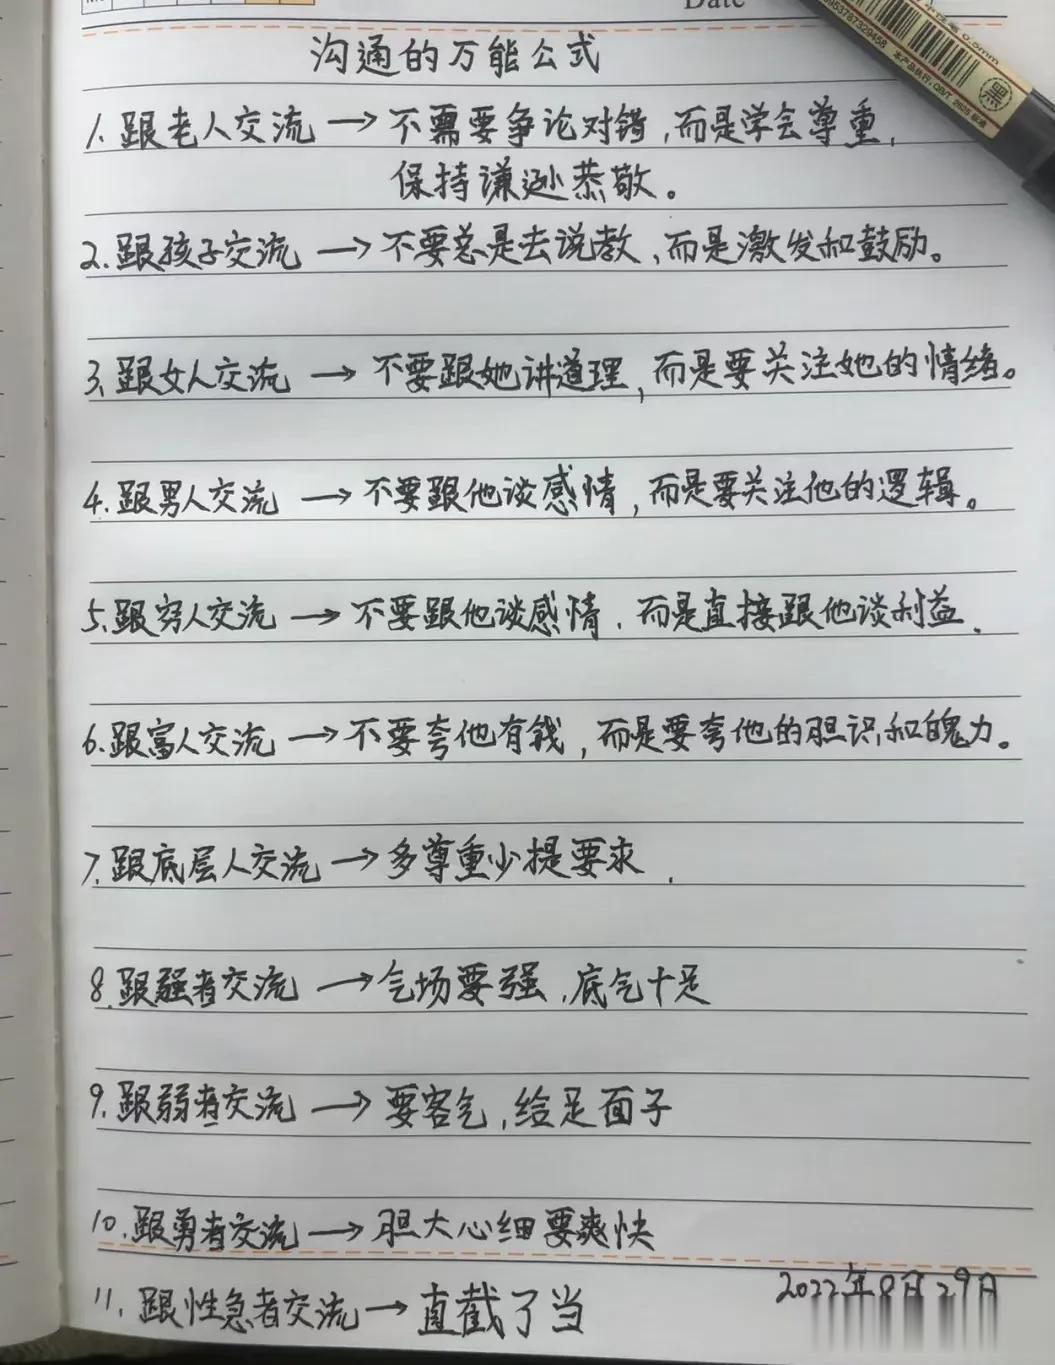 Date
沟通的万能公式
1.跟老人交流→不需要争论对错,而是学会尊重,
保持谦逊恭敬。
2.跟孩子交流→不要总是去说教,而是激发和鼓励。
3.跟女人交流→不要跟她讲道理,而是要关注她的情绪。
4.跟男人交流→不要跟他谈感情,而是要关注他的逻辑。
5.跟穷人交流→不要跟他谈感情,而是直接跟他谈利益.
6.跟富人交流→不要夸他有钱,而是要夸他的胆识和魄力。
7.跟底层人交流→多尊重少提要求.
8.跟强者交流→气场要强,底气十足
9.跟弱者交流→要客气,给足面子
10.跟勇者交流→胆大心细要爽快
11.跟性急者交流→直截了当
2022年8月29日
黑
0.5mm